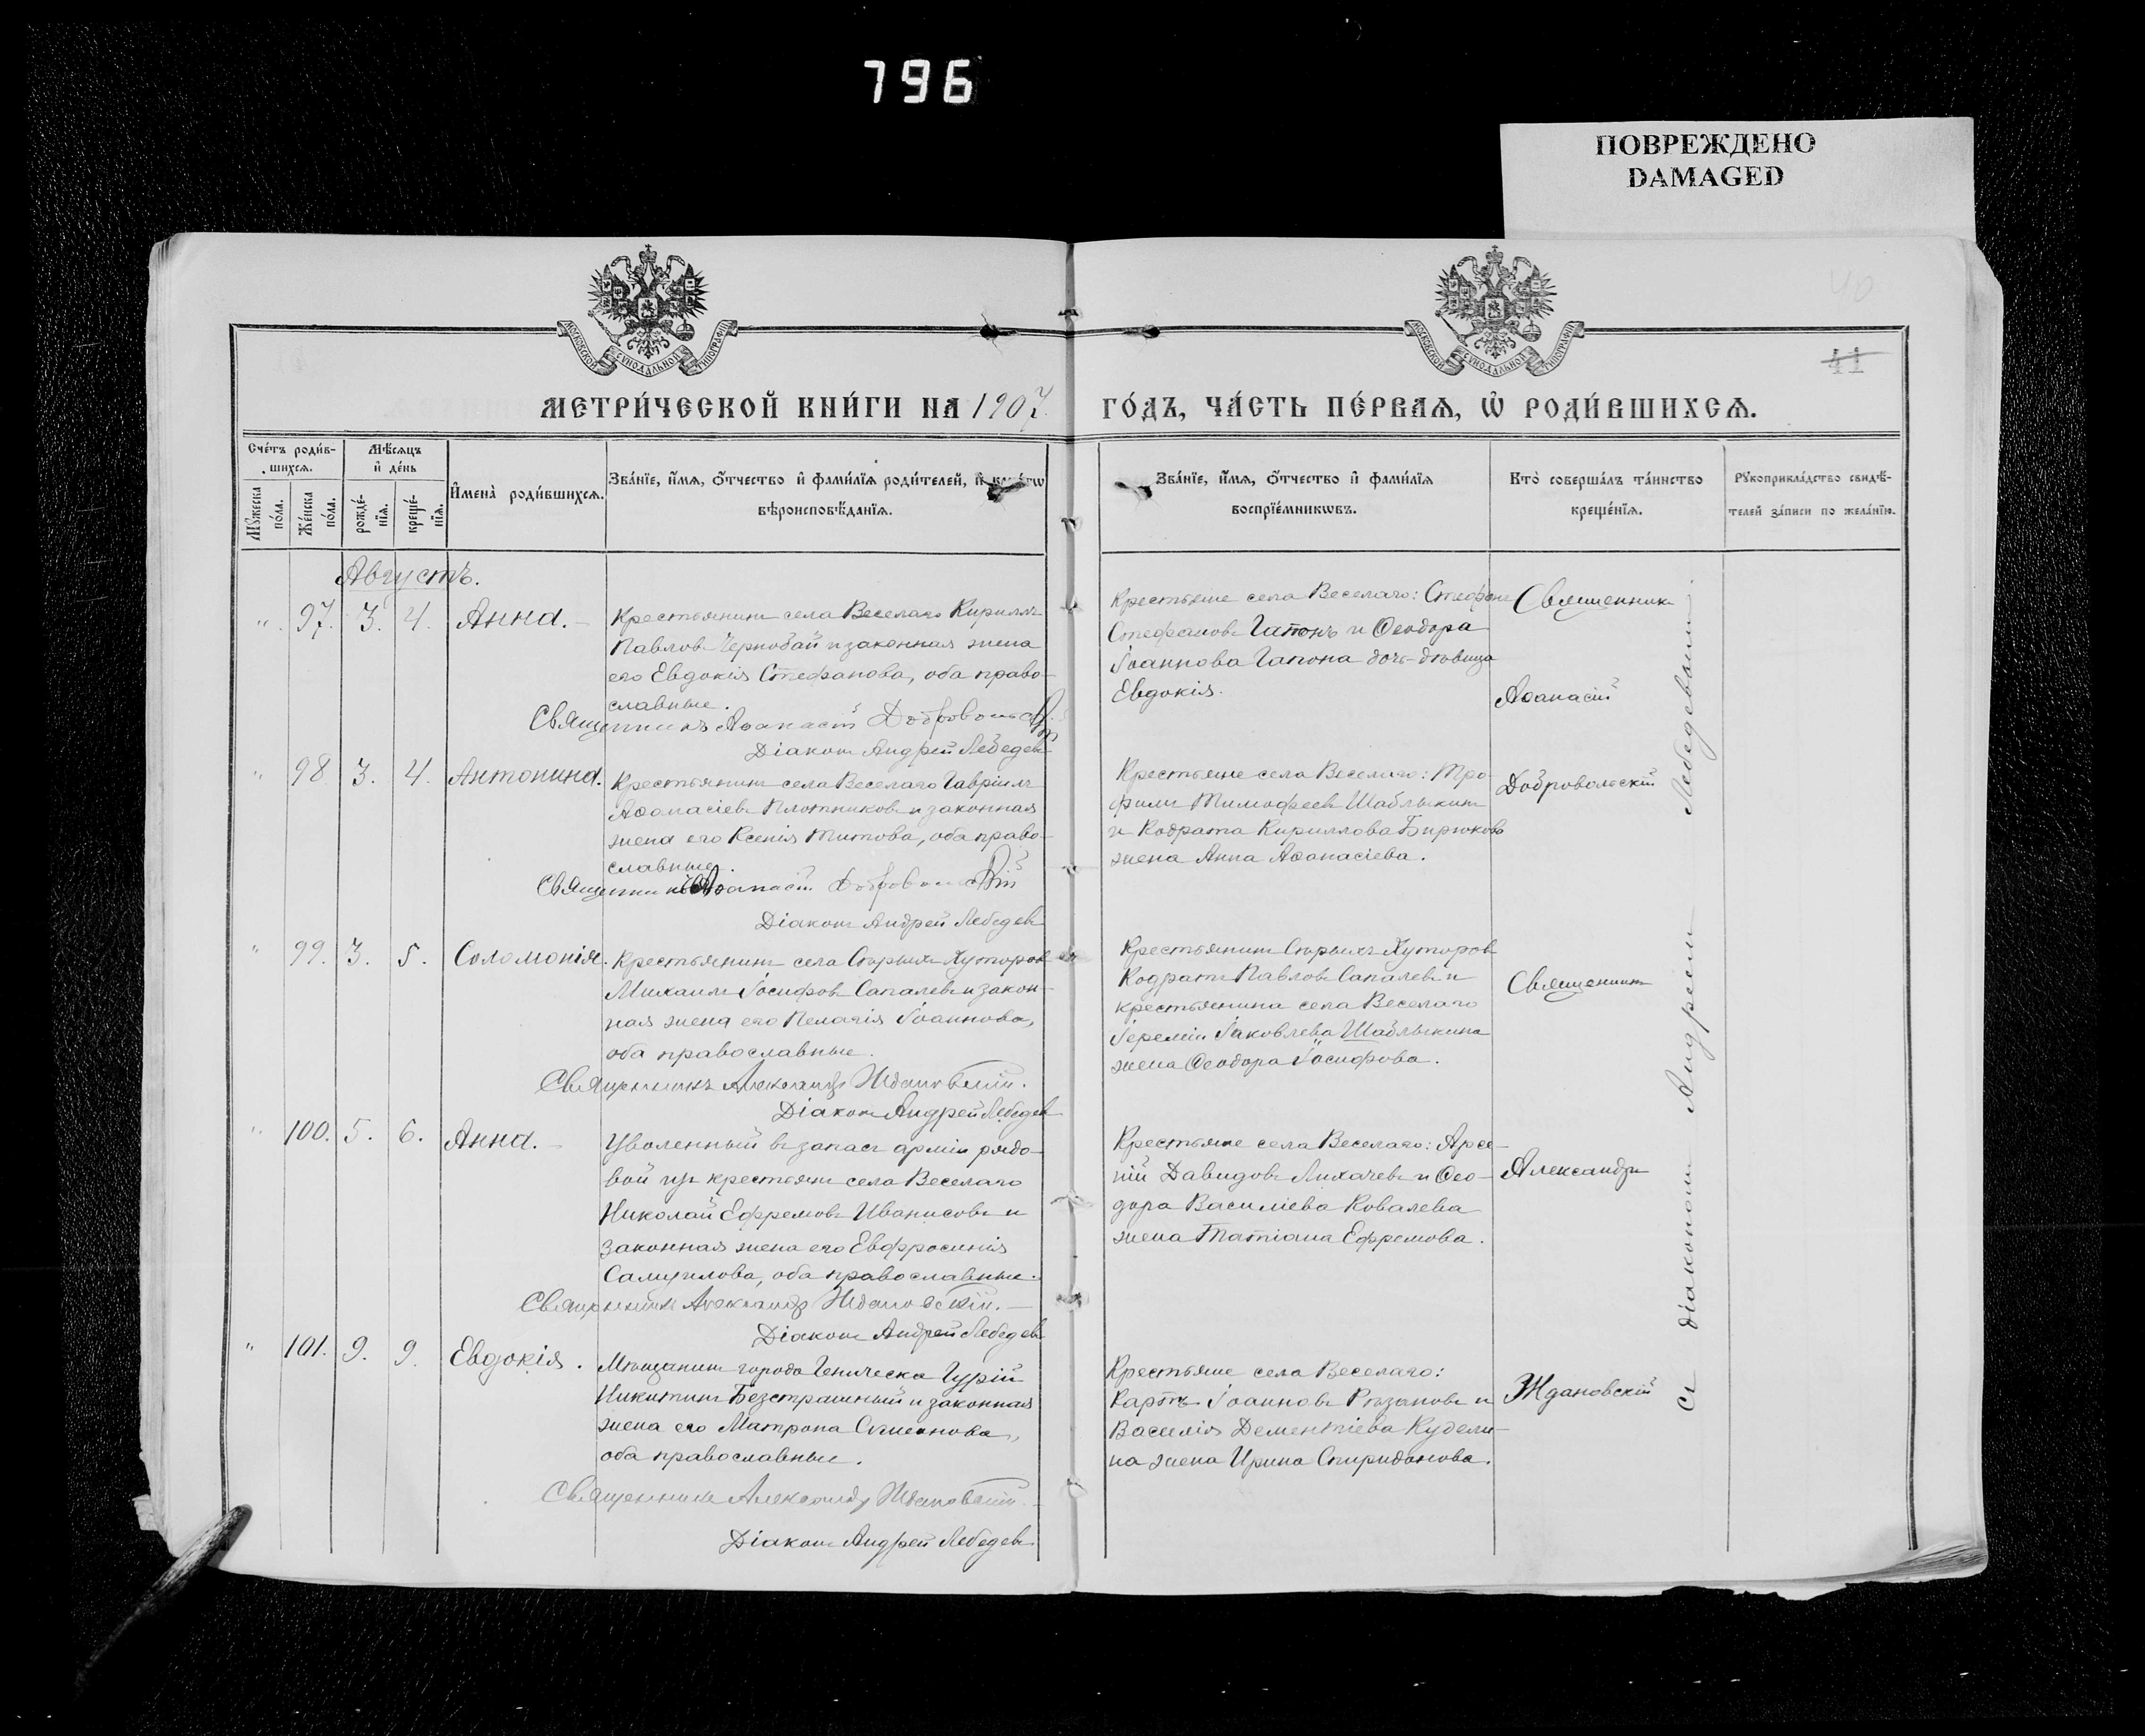 796
ПОВРЕЖДЕНО
DAMAGED
МОСКОВСКОЙ СУНОДАЛЬНОЙ ТИПОГРАФІИ
МОСКОВСКОЙ СУНОДАЛЬНОЙ ТИПОГРАФІИ
40
41
МЕТРИ́ЧЕСКОЙ КНИ́ГИ НА 1907 ГО́ДЪ, ЧА́СТЬ ПЕ́РВАѦ, Ѡ҆ РОДИ́ВШИХСѦ.
Сче́тъ роди́в-
шихсѧ.
Мꙋ́жеска по́ла.
Же́нска по́ла.
Мѣ́сѧцъ
и҆ де́нь
рожде́-
нїѧ.
креще́-
нїѧ.
И҆мена̀ роди́вшихсѧ.
Зва́нїе, и҆́мѧ, ѻ҆́тчество и҆ фами́лїѧ роди́телей, и҆
вѣроисповѣ́данїѧ.
Зва́нїе, и҆́мѧ, ѻ҆́тчество и҆ фами́лїѧ
воспрїе́мникѡвъ.
Кто̀ соверша́лъ та́инство
креще́нїѧ.
Рꙋкоприкла́дство свидѣ́-
телей за́писи по жела́нїю.
Августъ.
" 97. 3. 4. Анна.
Крестьянинъ села Веселаго Кириллъ
Павловъ Чернобай и законная жена
его Евдокія Стефанова, оба право-
славные.
Священникъ Аѳанасій Добровольскій
Діаконъ Андрей Лебедевъ
Крестьяне села Веселаго: Стефанъ
Стефановъ Гапонъ и Ѳеодора
Іоаннова Гапона дочь-дѣвица
Евдокія.
Священникъ
Аѳанасій
Добровольскій
" 98 3. 4. Антонина.
Крестьянинъ села Веселаго Гавріилъ
Аѳанасіевъ Плотниковъ и законная
жена его Ксенія Титова, оба право-
славные.
Священникъ Аѳанасій Добровольскій
Діаконъ Андрей Лебедевъ
Крестьяне села Веселаго: Тро-
фимъ Тимофеевъ Шаблыкинъ
и Кодрата Кириллова Бирюкова
жена Анна Аѳанасіева.
" 99. 3. 5. Соломонія.
Крестьянинъ села Старыхъ Хуторовъ
Михаилъ Іосифовъ Сапалевъ и закон-
ная жена его Пелагія Іоаннова,
оба православные.
Священникъ Александръ Ждановскій.
Діаконъ Андрей Лебедевъ
Крестьянинъ Старыхъ Хуторовъ
Кодратъ Павловъ Сапалевъ и
крестьянина села Веселаго
Іереміи Іаковлева Шаблыкина
жена Ѳеодора Іосифова.
Священникъ
Александръ
Ждановскій
" 100. 5. 6. Анна.
Уволенный въ запасъ арміи рядо-
вой изъ крестьянъ села Веселаго
Николай Ефремовъ Иванисовъ и
законная жена его Евфросинія
Самуилова, оба православные.
Священникъ Александръ Ждановскій.
Діаконъ Андрей Лебедевъ
Крестьяне села Веселаго: Арсе-
ній Давидовъ Лихачевъ и Ѳео-
дора Василіева Ковалева
жена Татіана Ефремова.
" 101. 9. 9. Евдокія.
Мѣщанинъ города Геническа Гурій
Никитинъ Безстрашный и законная
жена его Матрона Симеонова,
оба православные.
Священникъ Александръ Ждановскій
Діаконъ Андрей Лебедевъ
Крестьяне села Веселаго:
Карпъ Іоанновъ Рязановъ и
Василія Дементіева Кудели-
на жена Ирина Спиридонова.
Съ діакономъ Андреемъ Лебедевымъ.